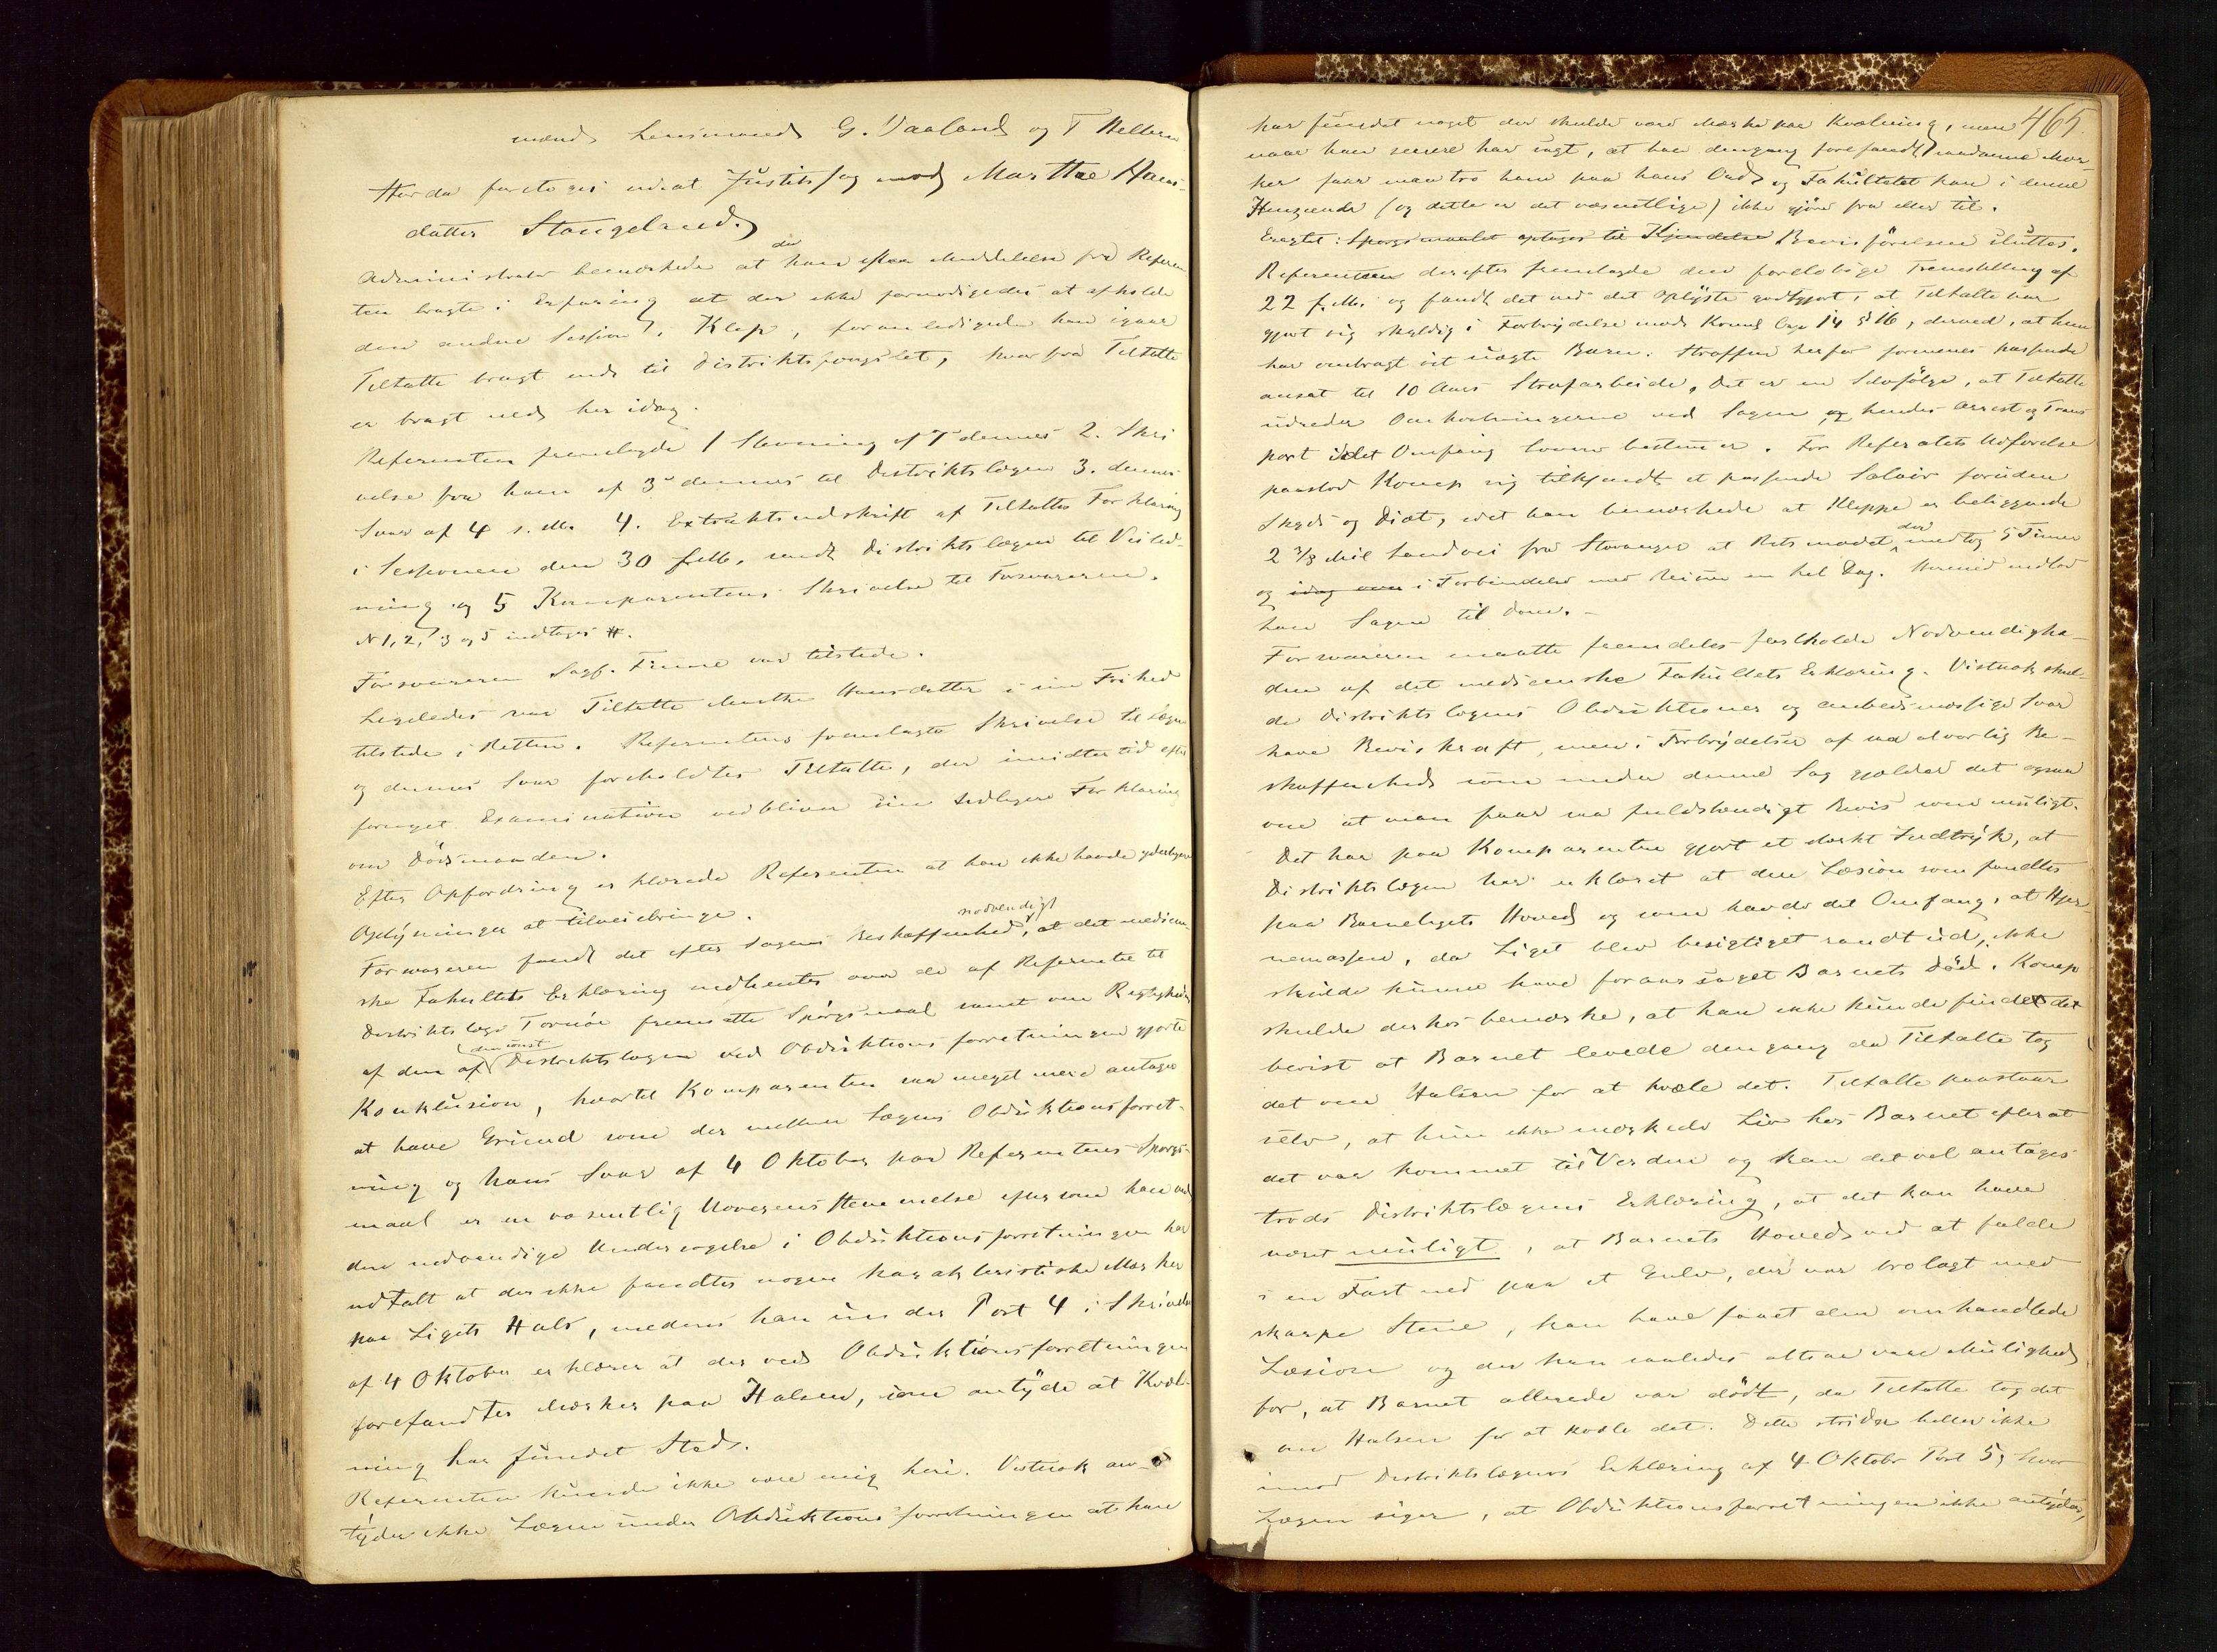 mænd Lensmand G. Vaaland og T Nelleren
Hvorda foretoges udsat Justitssag mod Marthe Hans-
datter Stangeland.
Administrator bemærkede at han efter der Meddelelse fra Referen
ten bragte i Erfaring at der ikke fornødigedes at afholde
den anden Session i Klep, foranledigede han igaar
Tiltalte bragt ind til Distriktsfængslet, hvorfra Tiltalte
er bragt ned her idag.
Referenten fremlagde 1 Stevning af 7 dennes 2. Skri
velse fra ham af 3 dennes til Distriktslægen 3. dennes
Svar af 4 s. M. 4. Extraktudskrift af Tiltaltes Forklaring
i Sessionen den 30 f. M. sendt Distriktslægen til Veiled-
ning og 5 Komparentens Skrivelse til Forsvareren.
N 1, 2, 3 og 5 indtages #.
Forsvareren Sagf. Finne var tilstede.
Ligeledes var Tiltalte Marthe Hansdatter i sin Frihed
tilstede i Retten. Referentens fremlagte Skrivelse til Lægen
og dennes Svar foreholdtes Tiltalte, der imidlertid efter
fornyet Examination vedbliver sin tidligere Forklaring
om Dødsmaaden.
Efter Opfordring erklærede Referenten at han ikke havde yderligere
Oplysninger at tilveiebringe.
Forsvareren fandt det efter Sagens Beskaffenhed nødvendigt, at det medicin
ske Fakultets Erklæring indhentes over de af Referenten til
Distriktslæge fremsatte Spørgsmaal samt om Rigtigheden
af den af den const Distriktslægen ved Obduktionsforretningen gjorte
Konklusion, hvortil Komparenten saa meget mere antager
at have Grund som der mellem Lægens Obduktionsforret-
ning og hans Svar af 4 Oktober paa Referentens Spørgs-
maal er en væsentlig Uoverensstemmelse eftersom han ved
den nødvendige Undersøgelse i Obduktionsforretningen har
udtalt at der ikke fandtes nogen karakteristiske Mærker
paa Ligets Hals, medens han under Post 4 i Skrivelse
af 4 Oktober erklærer at der ved Obduktionsforretningen
forefandtes Mærker paa Halsen, som antyde at Kvæl-
ning har fundet Sted.
Referenten kunde ikke være enig heri. Vistnok an-
tyder ikke Lægen under Obduktionsforretningen at have
465.
har fundet noget der skulde være Mærke paa Kvælning, men
naar han senere har sagt, at han dengang forefandt saadanne Mær
ker faar man tro ham paa hans Ord og Fakultetet kan i denne
Henseende (og dette er det væsentlige) ikke gjøre fra eller til.
Eragtet: Spørgsmaalet optages til Kjendelse Bevisførelsen sluttes.
Referenten derefter fremlagde den foreløbige Fremstilling af
22 f. M. og fandt det ved det oplyste godtgjort, at Tiltalte har
gjort sig skyldig i Forbrydelse mod Krimd lovs 14 § 16, derved, at hun
har ombragt sit uægte Barn. Straffen herfor formenes passende
ansat til 10 Aars Strafarbeide. Det er en Selvfølge, at Tiltalte
udreder Omkostningerne ved Sagen og hendes Arrest og Trans
port i det Omfang Loven bestemmer. For Referatets Udførelse
paastod Komp sig tilkjendt et passende Salair foruden
Skyds og Diæt, idet han bemærkede at Kleppe er beliggende
2 3/8 Mil Landvei fra Stavanger at Retsmødet der medtog 5 Timer
og idag var i Forbindelse med Reisen en hel Dag. Hermed indlod
han Sagen til Doms. -
Forsvareren maatte fremdeles fastholde Nødvendighe-
den af det medicinske Fakultets Erklæring. Vistnok skul-
de Distriktslægens Obduktioner og embedsmæssige Svar
have Beviskraft, men i Forbrydelser af saa alvorlig Be-
skaffenhed som under denne Sag gjælder det ogsaa
om at man faar saa fuldstændigt Bevis som muligt.
Det har paa Komparenten gjort et stærkt Indtryk, at
Distriktslægen har erklæret at den Læsion som fandtes
paa Barneligets Hoved og som havde det Omfang, at Hjer-
nemassen, da Liget blev besigtiget randt ud, ikke
skulde kunne have foraarsaget Barnets Død. Komp
skulde derhos bemærke, at han ikke kunde finde det
bevist at Barnet levede dengang da Tiltalte tog
det om Halsen for at kvæle det. Tiltalte paastaar
selv, at hun ikke mærkede Liv hos Barnet efterat
det var kommet til Verden og kan det vel antages
trods Distriktslægens Erklæring, at det kan have
været muligt, at Barnets Hoved ved at falde
i en Fart ned paa et Gulv, der var brolagt med
skarpe Stene, kan have faaet den omhandlede
Læsion og der kan saaledes altsaa være Mulighed
for, at Barnet allerede var dødt, da Tiltalte tog det
om Halsen for at kvæle det. Dette strider heller ikke
imod Distriktslægens Erklæring af 4 Oktobr Post 5, hvor
Lægen siger, at Obduktionsforretningen ikke antyder,